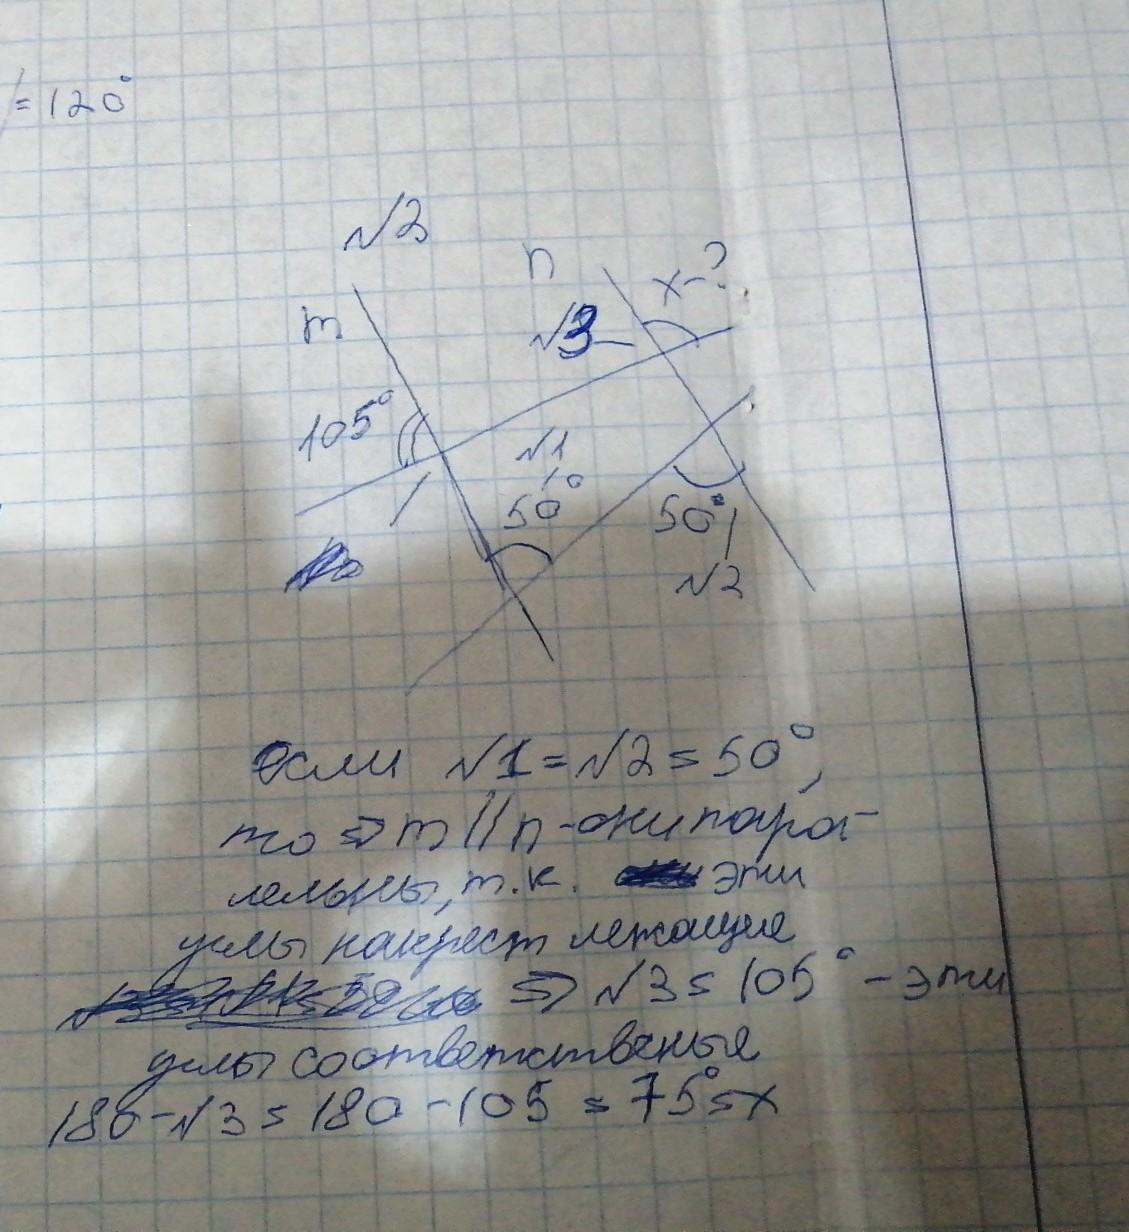 =120°
√2
n
x-?
m
√3
105°
√1
50°
50°
√2
если √1=√2=50°,
то ⇒ m//n-они парал-
лельны, т.к. эти
углы накрест лежащие
⇒ √3=105° - эти
углы соответственые
180-√3=180-105=75°=x